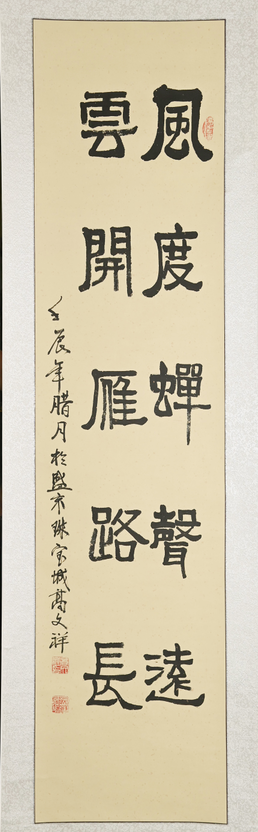 風度蟬聲遠
雲開雁路長
壬辰年腊月於盛京珠宝城高文祥